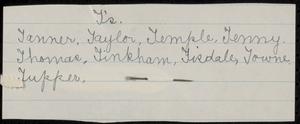 T's.
Tanner, Taylor, Temple, Tenny.
Thomas, Tinkham, Tisdale, Towne
Tupper.